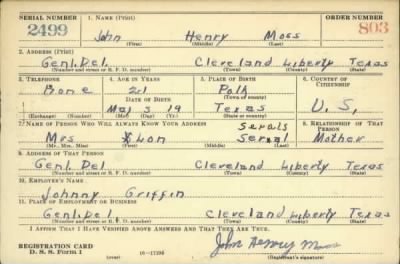 SERIAL NUMBER 1. NAME (Print) ORDER NUMBER
2499 John Henry Moss 803
(First) (Middle) (Last)
2. ADDRESS (Print)
Genl. Del. Cleveland Liberty Texas
(Number and street or R. F. D. number) (Town) (County) (State)
3. TELEPHONE 4. AGE IN YEARS 5. PLACE OF BIRTH 6. COUNTRY OF CITIZENSHIP
None 21 Polk
DATE OF BIRTH (Town or county)
May 5 19 Texas U. S.
(Exchange) (Number) (Mo.) (Day) (Yr.) (State or country)
7. NAME OF PERSON WHO WILL ALWAYS KNOW YOUR ADDRESS 8. RELATIONSHIP OF THAT PERSON
Mrs Mother
(Mr., Mrs., Miss) (First) (Middle) (Last)
9. ADDRESS OF THAT PERSON
Genl. Del Cleveland Liberty Texas
(Number and street or R. F. D. number) (Town) (County) (State)
10. EMPLOYER'S NAME
Johnny Griffin
11. PLACE OF EMPLOYMENT OR BUSINESS
Genl. Del Cleveland Liberty Texas
(Number and street or R. F. D. number) (Town) (County) (State)
I AFFIRM THAT I HAVE VERIFIED ABOVE ANSWERS AND THAT THEY ARE TRUE.
REGISTRATION CARD John Henry Moss
D. S. S. Form 1 (over) (Registrant's signature)